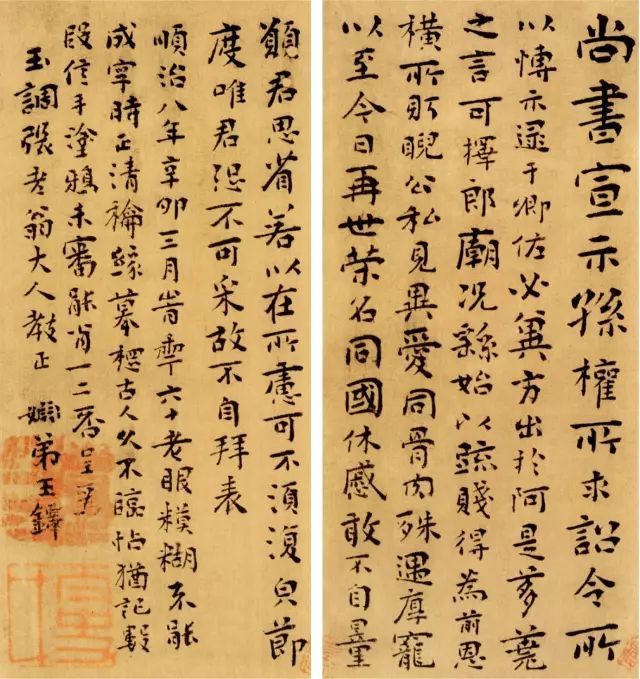 尚書宣示孫權所求詔令所
以博示逯于卿佐必冀方出於阿是芻蕘
之言可擇郎廟況繇始以疏賤得為前恩
橫所盱睨公私見異愛同骨肉殊遇厚寵
以至今日再世榮名同國休慼敢不自量
願君思省若以在所慮可不須復皃節
度唯君恐不可采故不自拜表
順治八年辛卯三月六十老眼糢糊不能
成寧時正清摹古人久不臨帖猶記數
段信手塗鴉未審能肖一二否呈
玉調張老翁大人教正 姻弟王鐸